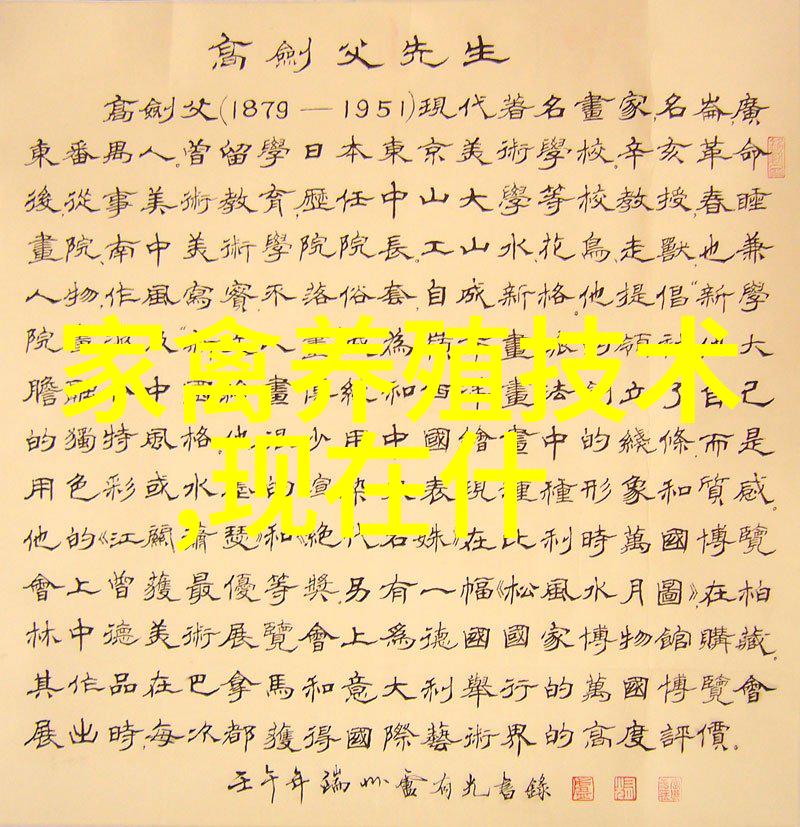 高劍父先生
高劍父(1879—1951)現代著名畫家,名崙,廣
東番禺人。曾留學日本東京美術學校。辛亥革命
後,從事美術教育,歷任中山大學等校教授,春睡
畫院、南中美術學院院長。工山水、花鳥、走獸,也兼
人物,作風寫實,不落俗套,自成新格。他提倡“新學
院
大
膽融 中國繪畫傳統和 畫法創立了自己
的獨特風格。他 少用中國繪畫中的綫條,而是
用色彩或水墨的渲染 表現種種形象和質感。
他的《江關蕭瑟》和《絕代名姝》在比利時萬國博覽
會上曾獲最優等獎。另有一幅《松風水月圖》,在柏
林中德美術展覽會上為德國國家博物館購藏。
其作品在巴拿馬和意大利舉行的萬國博覽會
展出時,每次都獲得國際藝術界的高度評價。
壬午年端州盧有光書錄
家禽养殖技术
,现在什